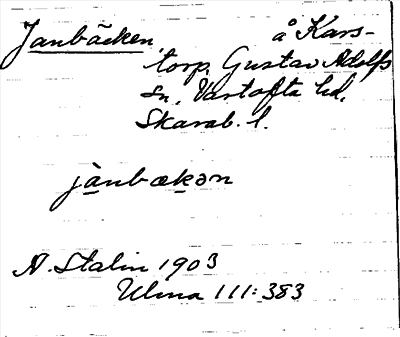 Janbäcken, å Kars-
torp, Gustav Adolfs
sn, Vartofta hd,
Skarab. l.
jànbækən
N. Stalin 1903
Ulma 111:383